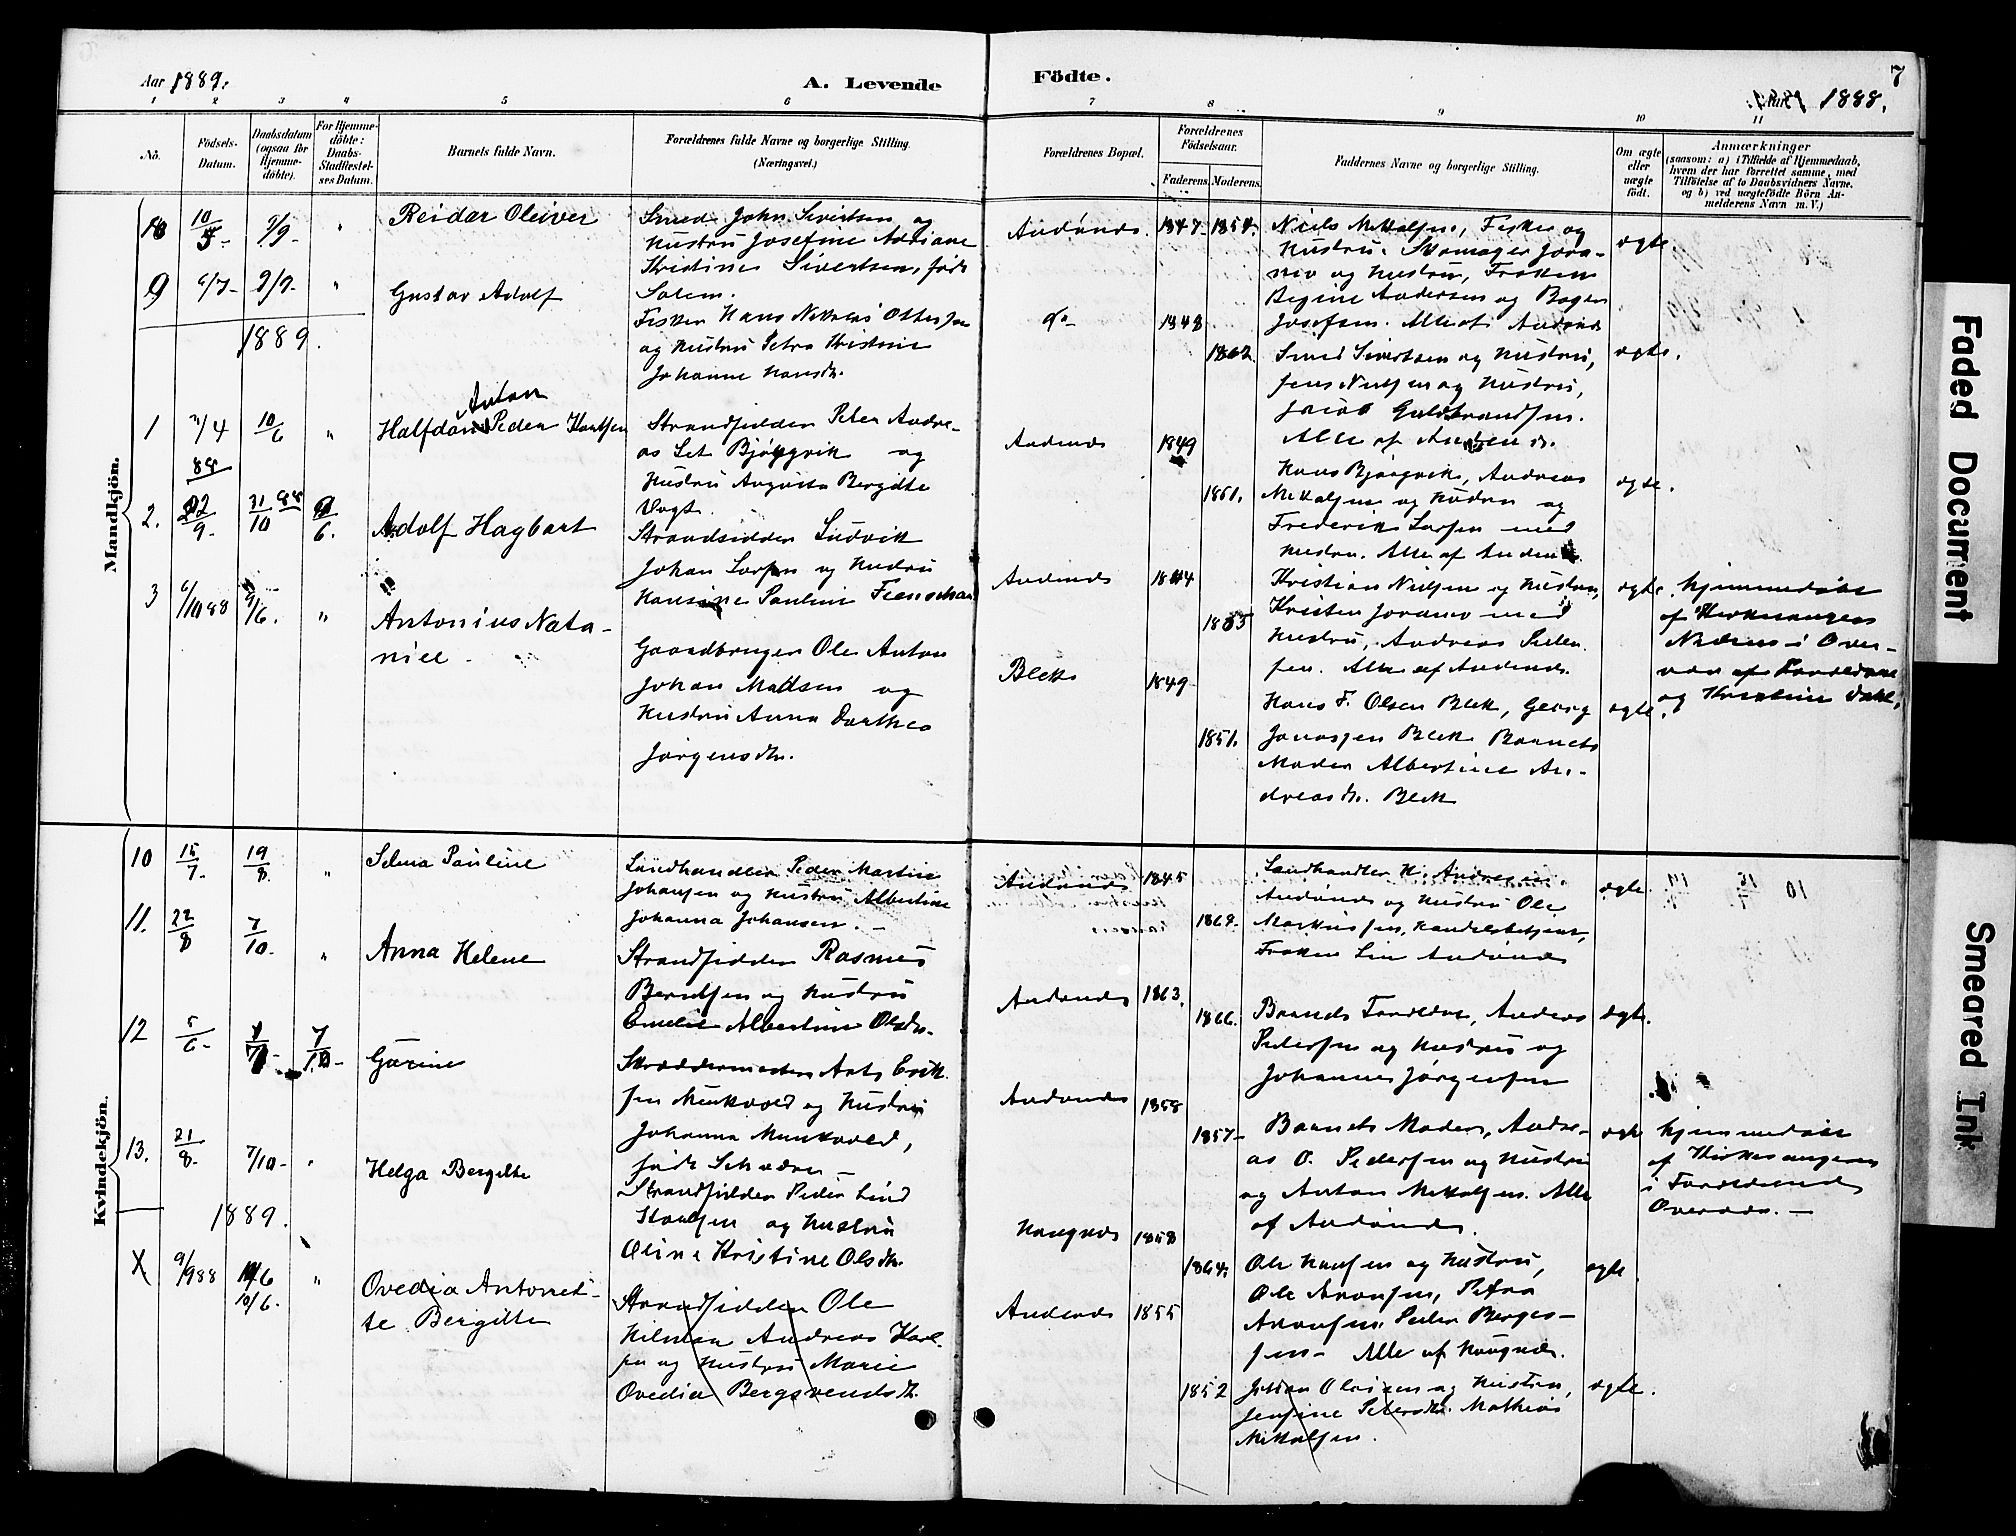 Aar 1889.
A. Levende
Födte.
7
1888.
1 2 3 4 5 6 7 8 9 10 11
No.
Födsels-Datum.
Daabsdatum (ogsaa for Hjemme-döbte).
For Hjemme-döbte: Daabs-Stadfæstel-ses Datum.
Barnets fulde Navn.
Forældrenes fulde Navne og borgerlige Stilling. (Næringsvei.)
Forældrenes Bopæl.
Forældrenes Födselsaar.
Faderens. Moderens.
Faddernes Navne og borgerlige Stilling.
Om ægte eller uægte födt.
Anmærkninger
(saasom: a) i Tilfælde af Hjemmedaab,
hvem der har forrettet samme, med
Tilföielse af to Daabsvidners Navne,
og b) ved uægtefödte Börn An-
melderens Navn m. V.)
Mandkjön.
Reidar Oleiver
Smed John Sivertsen og
Hustru Josefine Adriane
Kristine Sivertsen, föde
Salem.
Andönes 1847 1857.
Niels Mikkalsen, Fisker og
Hustru. Skomager Jora-
nov og Hustru, Fröken
Regine Andersen og Roger
Josefsen. Alle af Andönes
ægte
9 6/7 2/9 "
Gustav Adolf
Fisker Hans Nikolai Ottesen
og Hustru Petra Kristine
Johanne Hansdtr.
do 1848 1862.
Smed Sivertsen og Hustru,
Jens Nielsen og Hustru,
Jacob Guldbrandsen.
Alle af Andenes.
ægte.
1889.
1 11/4 88 10/6 "
Halfdan Anton Peder Knutsen
Strandsidder Peter Andre-
as Set Bjørgvik og
Hustru Augusta Bergitte
Vogt.
Andenes 1849 1861.
Hans Bjørgvik, Andreas
Mikkalsen og Hustru og
Frederik Larsen med
Hustru. Alle af Andenes.
ægte.
2. 22/9 31/10 88 9/6.
Adolf Hagbart
Strandsidder Ludvik
Johan Larsen og Hustru
Hansine Pauline
Andenes 1844 1855
Kristian Nielsen og Hustru,
Kristen Joranov med
Hustru, Andreas Peder-
sen. Alle af Andenes.
ægte.
Hjemmedöbt
af Kirkesanger
Nikæus i Over-
vær af Forældrene
og Kristine Dahl.
3 6/10 88 9/6. "
Antonius Nata-
niel.
Gaardbruger Ole Anton
Johan Madsen og
Hustru Anna Dorthea
Jörgensdtr.
Bleik 1849 1851.
Hans F. Olsen Bleik, Georg
Jonassen Bleik Barnets
Moder Albertine An-
dreasdtr. Bleik
ægte.
Kvindekjön.
10 15/7. 19/8. "
Selma Pauline
Landhandler Peder Martin
Johansen og Hustru Albertine
Johanna Johansen.
Andönes 1845 1869.
Landhandler H. Andresen
Andönes og Hustru Ole
Markussen, Handelsbetjent,
Fröken Lie Andönes
ægte.
11. 22/8 7/10. "
Anna Helene
Strandsidder Rasmus
Berntsen og Hustru
Emelie Albertine Olsdtr.
Andönes 1863. 1866.
Barnets Forældre, Anders
Pedersen og Hustru og
Johannes Jörgensen
ægte.
12 5/6. 7/10
Gurine
Skræddermester Ants Erik-
sen Munkvold og Hustru
Johanna Munkvold,
föde
Andönes 1858 1857
Barnets Moder, Andre-
as O. Pedersen og Hustru
og Anton Mikkalsen. Alle
af Andönes.
ægte
Hjemmedöbt
af Kirkesangeren
i Forældrenes
Overvær.
13. 21/8. 7/10 "
Helga Bergitte
Strandsidder Peder Lind
og Hustru
Oline Kristine Olsdtr.
Haugnes 1858 1864.
Ole Hansen og Hustru,
Ole Aronsen, Petra
Aronsen, Peder Berges-
sen. Alle af Haugnes.
ægte
1889.
X 9/9 88 10/6. "
Ovedia Antonet-
te Bergitte
Strandsidder Ole
Hilman Andreas Karl-
sen og Hustru Marie
Ovedia Bergsvendsdtr.
Andenes 1855 1852
Johan Olaisen og Hustru,
Jensine Petersdtr. Mathias
Mikkalsen.
ægte.
Faded Document
Smeared Ink